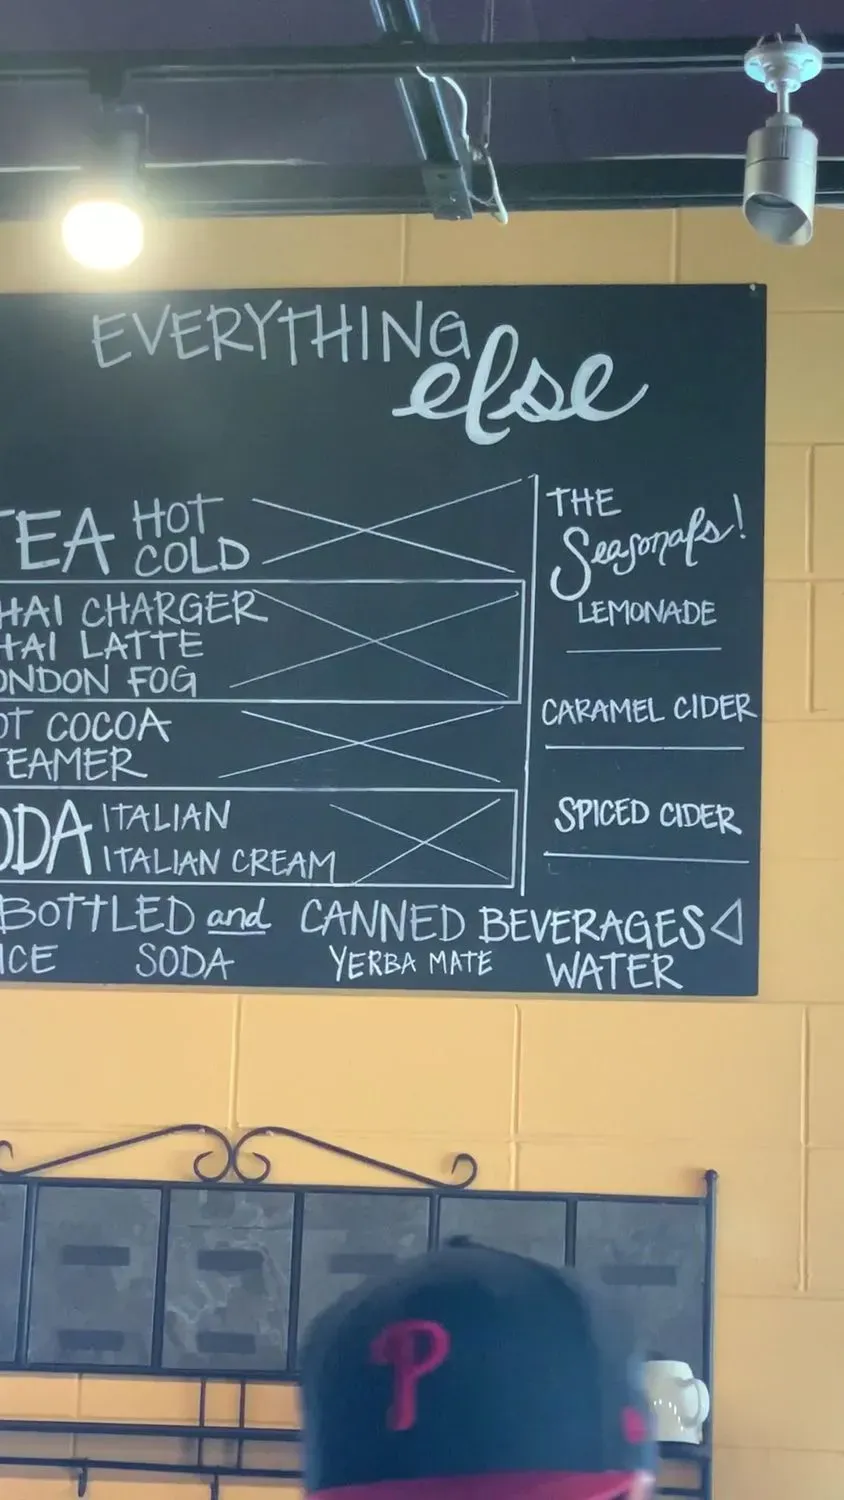 EVERYTHING
else
TEA HOT
COLD
HAI CHARGER
HAI LATTE
ONDON FOG
OT COCOA
TEAMER
ODA ITALIAN
ITALIAN CREAM
THE
Seasonals!
LEMONADE
CARAMEL CIDER
SPICED CIDER
BOTTLED and CANNED BEVERAGES
ICE SODA YERBA MATE WATER
P